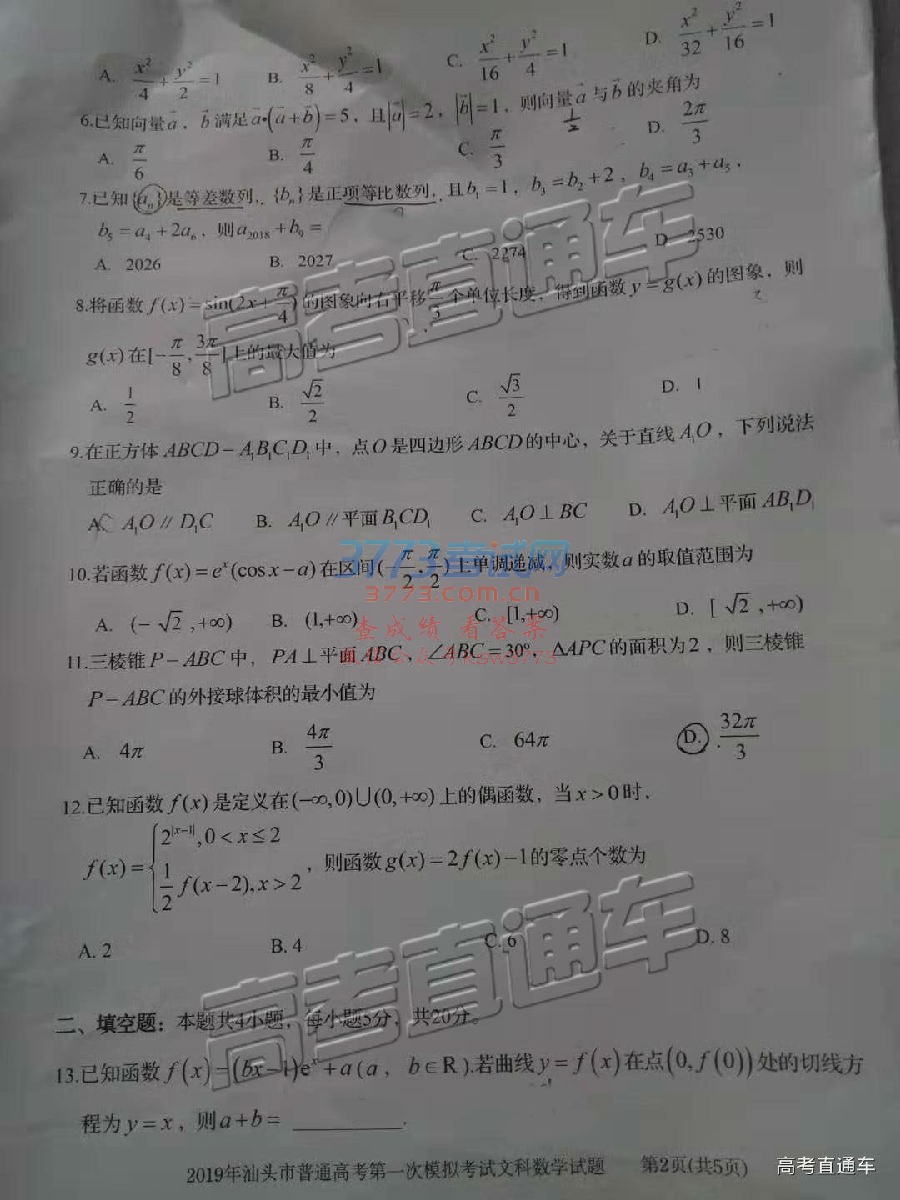 A. x²/4 + y²/2 = 1 B. x²/8 + y²/4 = 1 C. x²/16 + y²/4 = 1 D. x²/32 + y²/16 = 1
6.已知向量a⃗，b⃗满足a⃗•(a⃗+b⃗)=5，且|a⃗|=2，|b⃗|=1，则向量a⃗与b⃗的夹角为
1/2
A. π/6 B. π/4 C. π/3 D. 2π/3
7.已知{aₙ}是等差数列，{bₙ}是正项等比数列，且b₁=1，b₃=b₂+2，b₄=a₃+a₅，
b₅=a₄+2a₆，则a₂₀₁₈+b₉=
A. 2026 B. 2027 C. 2274 D. 2530
8.将函数f(x)=sin(2x+π/4)的图象向右平移π/3个单位长度，得到函数y=g(x)的图象，则
g(x)在[-π/8, 3π/8]上的最大值为
A. 1/2 B. √2/2 C. √3/2 D. 1
9.在正方体ABCD-A₁B₁C₁D₁中，点O是四边形ABCD的中心，关于直线A₁O，下列说法
正确的是
A. A₁O∥D₁C B. A₁O∥平面B₁CD₁ C. A₁O⊥BC D. A₁O⊥平面AB₁D₁
3773考试网
10.若函数f(x)=eˣ(cosx-a)在区间(-π/2, π/2)上单调递减，则实数a的取值范围为
3773.com.cn
A. (-√2,+∞) B. (1,+∞) C. [1,+∞) D. [√2,+∞)
查成绩 看答案
11.三棱锥P-ABC中，PA⊥平面ABC，∠ABC=30°，ΔAPC的面积为2，则三棱锥
P-ABC的外接球体积的最小值为
A. 4π B. 4π/3 C. 64π D. 32π/3
12.已知函数f(x)是定义在(-∞,0)∪(0,+∞)上的偶函数，当x>0时，
f(x)={2^|x-1|, 0<x≤2
1/2 f(x-2), x>2，则函数g(x)=2f(x)-1的零点个数为
A. 2 B. 4 C. 6 D. 8
高考直通车
高考直通车
二、填空题：本题共4小题，每小题5分，共20分。
13.已知函数f(x)=(bx-1)eˣ+a(a，b∈R).若曲线y=f(x)在点(0,f(0))处的切线方
程为y=x，则a+b= ________.
2019年汕头市普通高考第一次模拟考试文科数学试题 第2页(共5页)
高考直通车